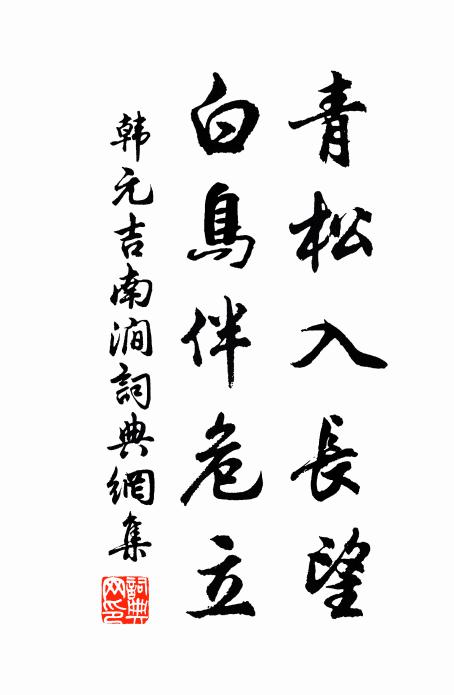 青松入長望
白鳥伴危立
韩元吉南澗詞典網集
詞典网印